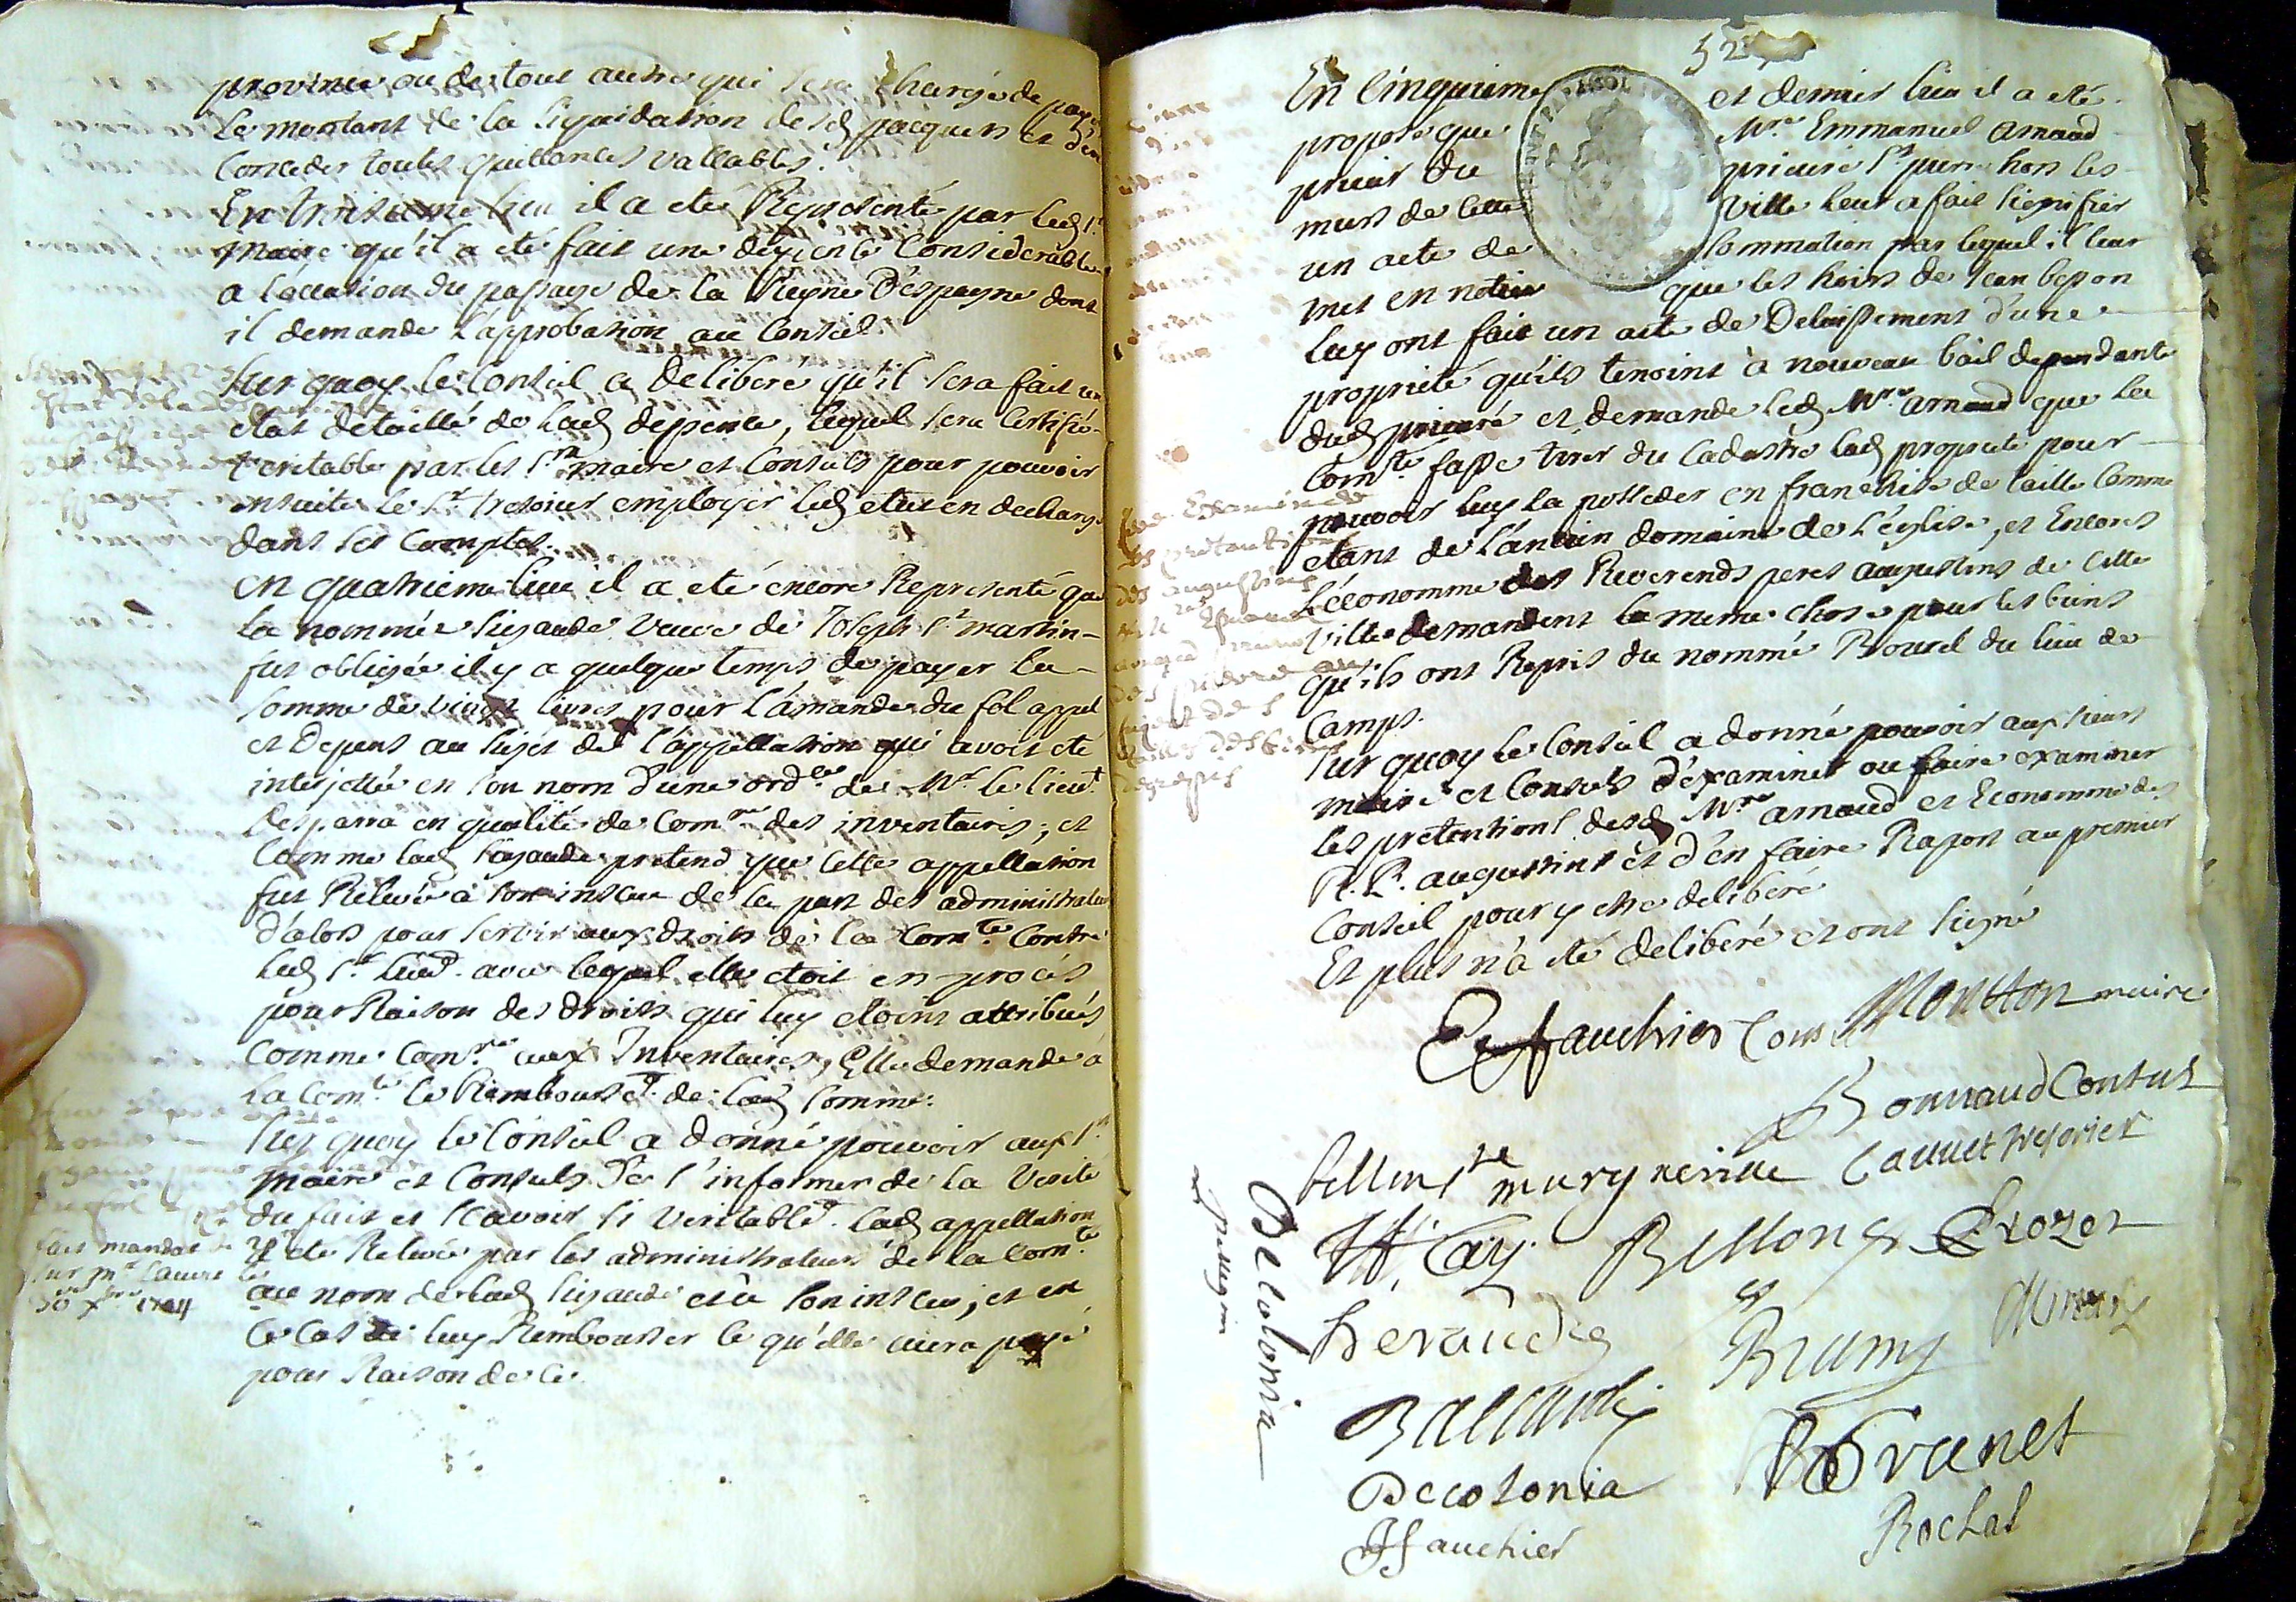 province ou de tout autre qui sera chargé de payer
le montant de la liquidation desd pacquets et d'en
conceder toutes quittances vallables.
En troisieme lieu il a eté Representé par led sr
maire qu'il a eté fait une depence considerable
a l'occasion du passage de la Reyne d'espagne dont
il demande l'approbation au Conseil.
Sur quoy le Conseil a deliberé qu'il sera fait un
etat detaillé de lad depence, lequel sera certifié
veritable par les srs maire et Consuls pour pouvoir
ensuite le sr tresorier employer led etat en decharge
dans ses comptes.
En quatrieme lieu il a eté encore Representé que
la nommée Sigaude veuve de Joseph st martin
fut obligée il y a quelque temps de payer la
somme de vingt livres pour l'amande du fol appel
et depens au sujet de l'appellation qui avoit eté
interjettée en son nom d'une ordce de Mr le lieut
Desparra en qualité de Comre des inventaires; et
comme lad Sigaude pretend que cette appellation
fut Relevée à son insceu de la part des administrateurs
d'alors pour servir aux droits de la Comté contre
led sr lieut. avec lequel elle etoit en procès
pour Raison des droits qui luy etoint attribués
comme Comre aux Inventaires, Elle demande à
la Comté le Rembourset de lad somme.
Sur quoy le Conseil a donné pouvoir aux srs
maire et Consuls de s'informer de la verité
du fait et scavoir si veritablet lad appellation
a eté Relevée par les administrateurs de la Comté
au nom de lad Sigaude et à son insceu, et en
ce cas de luy Rembourser ce qu'elle aura payé
pour Raison de ce.
fait mandat
sur mr Lauvet le
30 xbre 1714
52
En cinquieme et dernier lieu il a eté
proposé que Mre Emmanuel Arnaud
prieur du prieuré st pierre hors les
murs de cette ville leur a fait signifier
un acte de sommation par lequel il leur
met en notice que les hoirs de Jean besson
luy ont fait un acte de Delaissement d'une
proprieté qu'ils tenoint à nouveau bail dependante
dud prieuré et demande led Mre arnaud que la
Comté fasse tirer du cadastre lad proprieté pour
pouvoir luy la posseder en franchise de taille comme
etant de l'ancien domaine de l'église, et Encores
l'économme des Reverends peres augustins de cette
ville demandent la meme chose pour les biens
qu'ils ont Repris du nommé Bourel du lieu de
Camps.
Sur quoy le Conseil a donné pouvoir aux sieurs
maire et Consuls d'examiner ou faire examiner
les pretentions desd Mre arnaud et Economme des
R. P. augustins et d'en faire Raport au premier
Conseil pour y etre deliberé
Et plus n'a eté deliberé et ont signé
Fauchier Cons Moutton maire
Bonnaud Consul
Lauvet tresorier
Bellon Crozet
Brun
Decolonia
Decolonia
Branet
Fauchier
Rochas